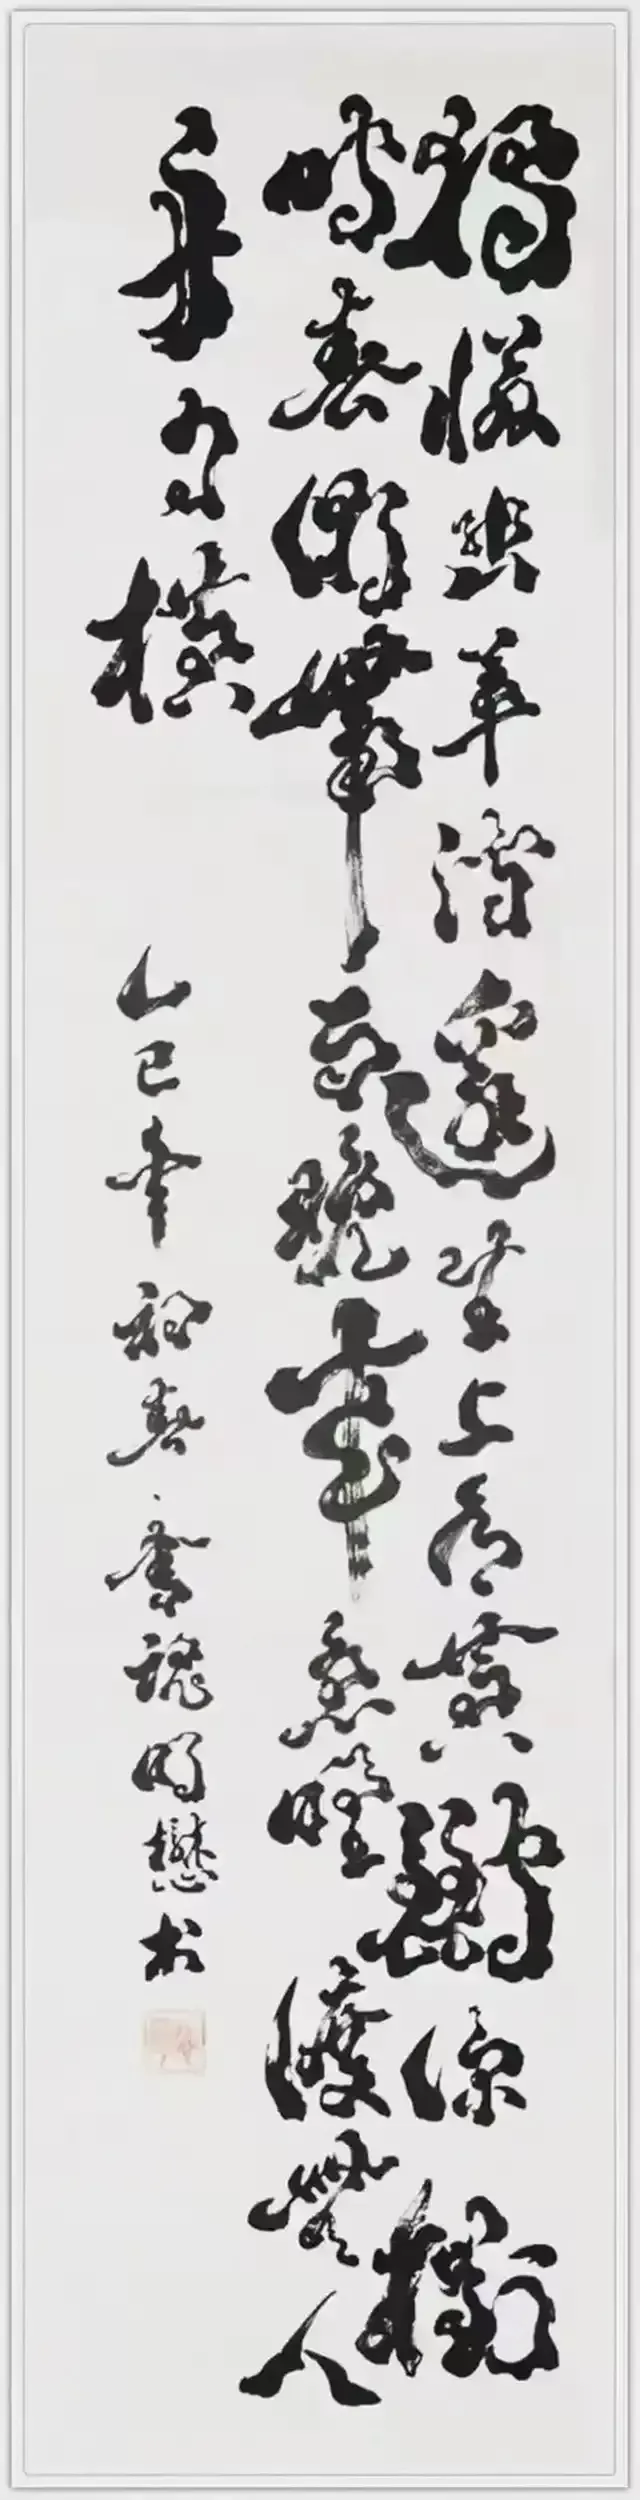 獨憐幽草澗邊生上有黃鸝深樹
鳴春潮帶雨晚来急野渡無人
舟自橫 乙巳年初春 魂明懋书